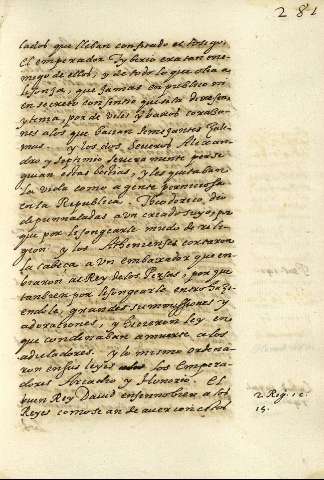 281
lados que lleban confiado el
El emperador Tyberio era tan ene-
migo de ellos, y de todo lo que olia a
lisonja, que jamas en publico ni
en secreto consintio que se le dixesen,
y tenia, por de viles y baxos coraço-
nes a los que hacian semejantes
. y los dos Severos Alexan-
dro y Septimio Severamente perse-
guian estas bestias, y les quitaban
la vida como a gente perniciosa
en la Republica. Theodorico, dio
de puñaladas a un criado suyo, por
que por lisongearle mudo de reli-
gion y los Athenienses cortaron
la cabeça a un embaxador que en-
biaron al Rey de los Persas, por que
tambien por lisongearle entro ha-
ciendole, grandes sumissiones y
adoraciones, y hicieron ley en
que condenaban a muerte a los
aduladores. y lo mismo ordena-
ron en sus leyes los Empera-
dores Arcadio y Honorio. El
buen Rey David enseño bien a los
Reyes como se an de aver con estos
2. Reg. 1. c.
15.